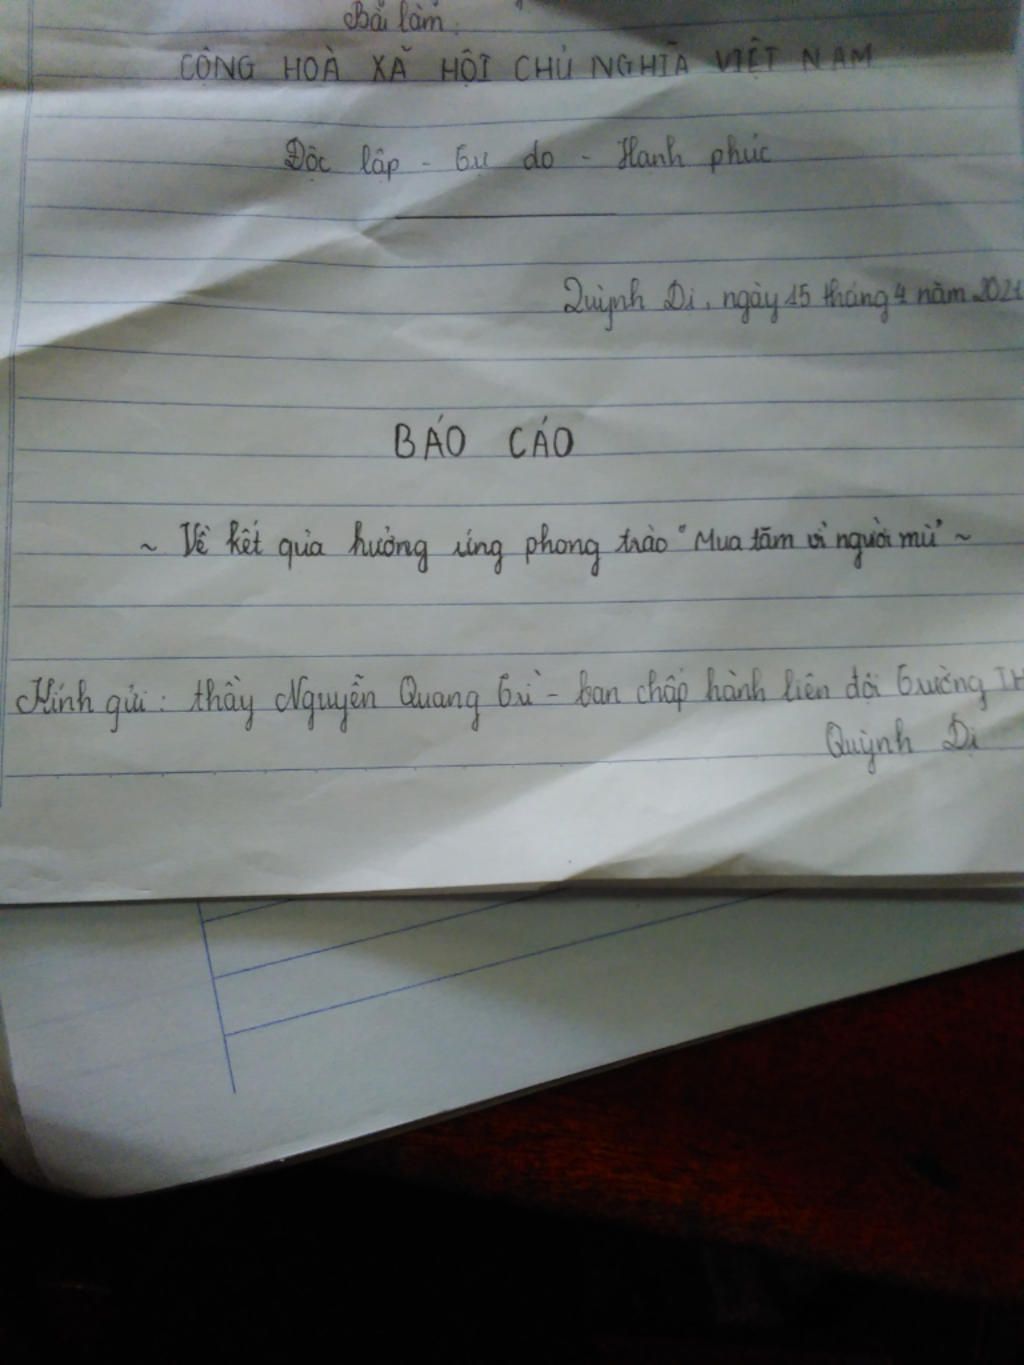 Bài làm:
CỘNG HOÀ XÃ HỘI CHỦ NGHĨA VIỆT NAM
Độc lập - Tự do - Hạnh phúc
Quỳnh Dị, ngày 15 tháng 4 năm 2021
BÁO CÁO
~ Về kết quả hưởng ứng phong trào "Mua tăm vì người mù" ~
Kính gửi: thầy Nguyễn Quang Trì - ban chấp hành liên đội Trường TH
Quỳnh Dị